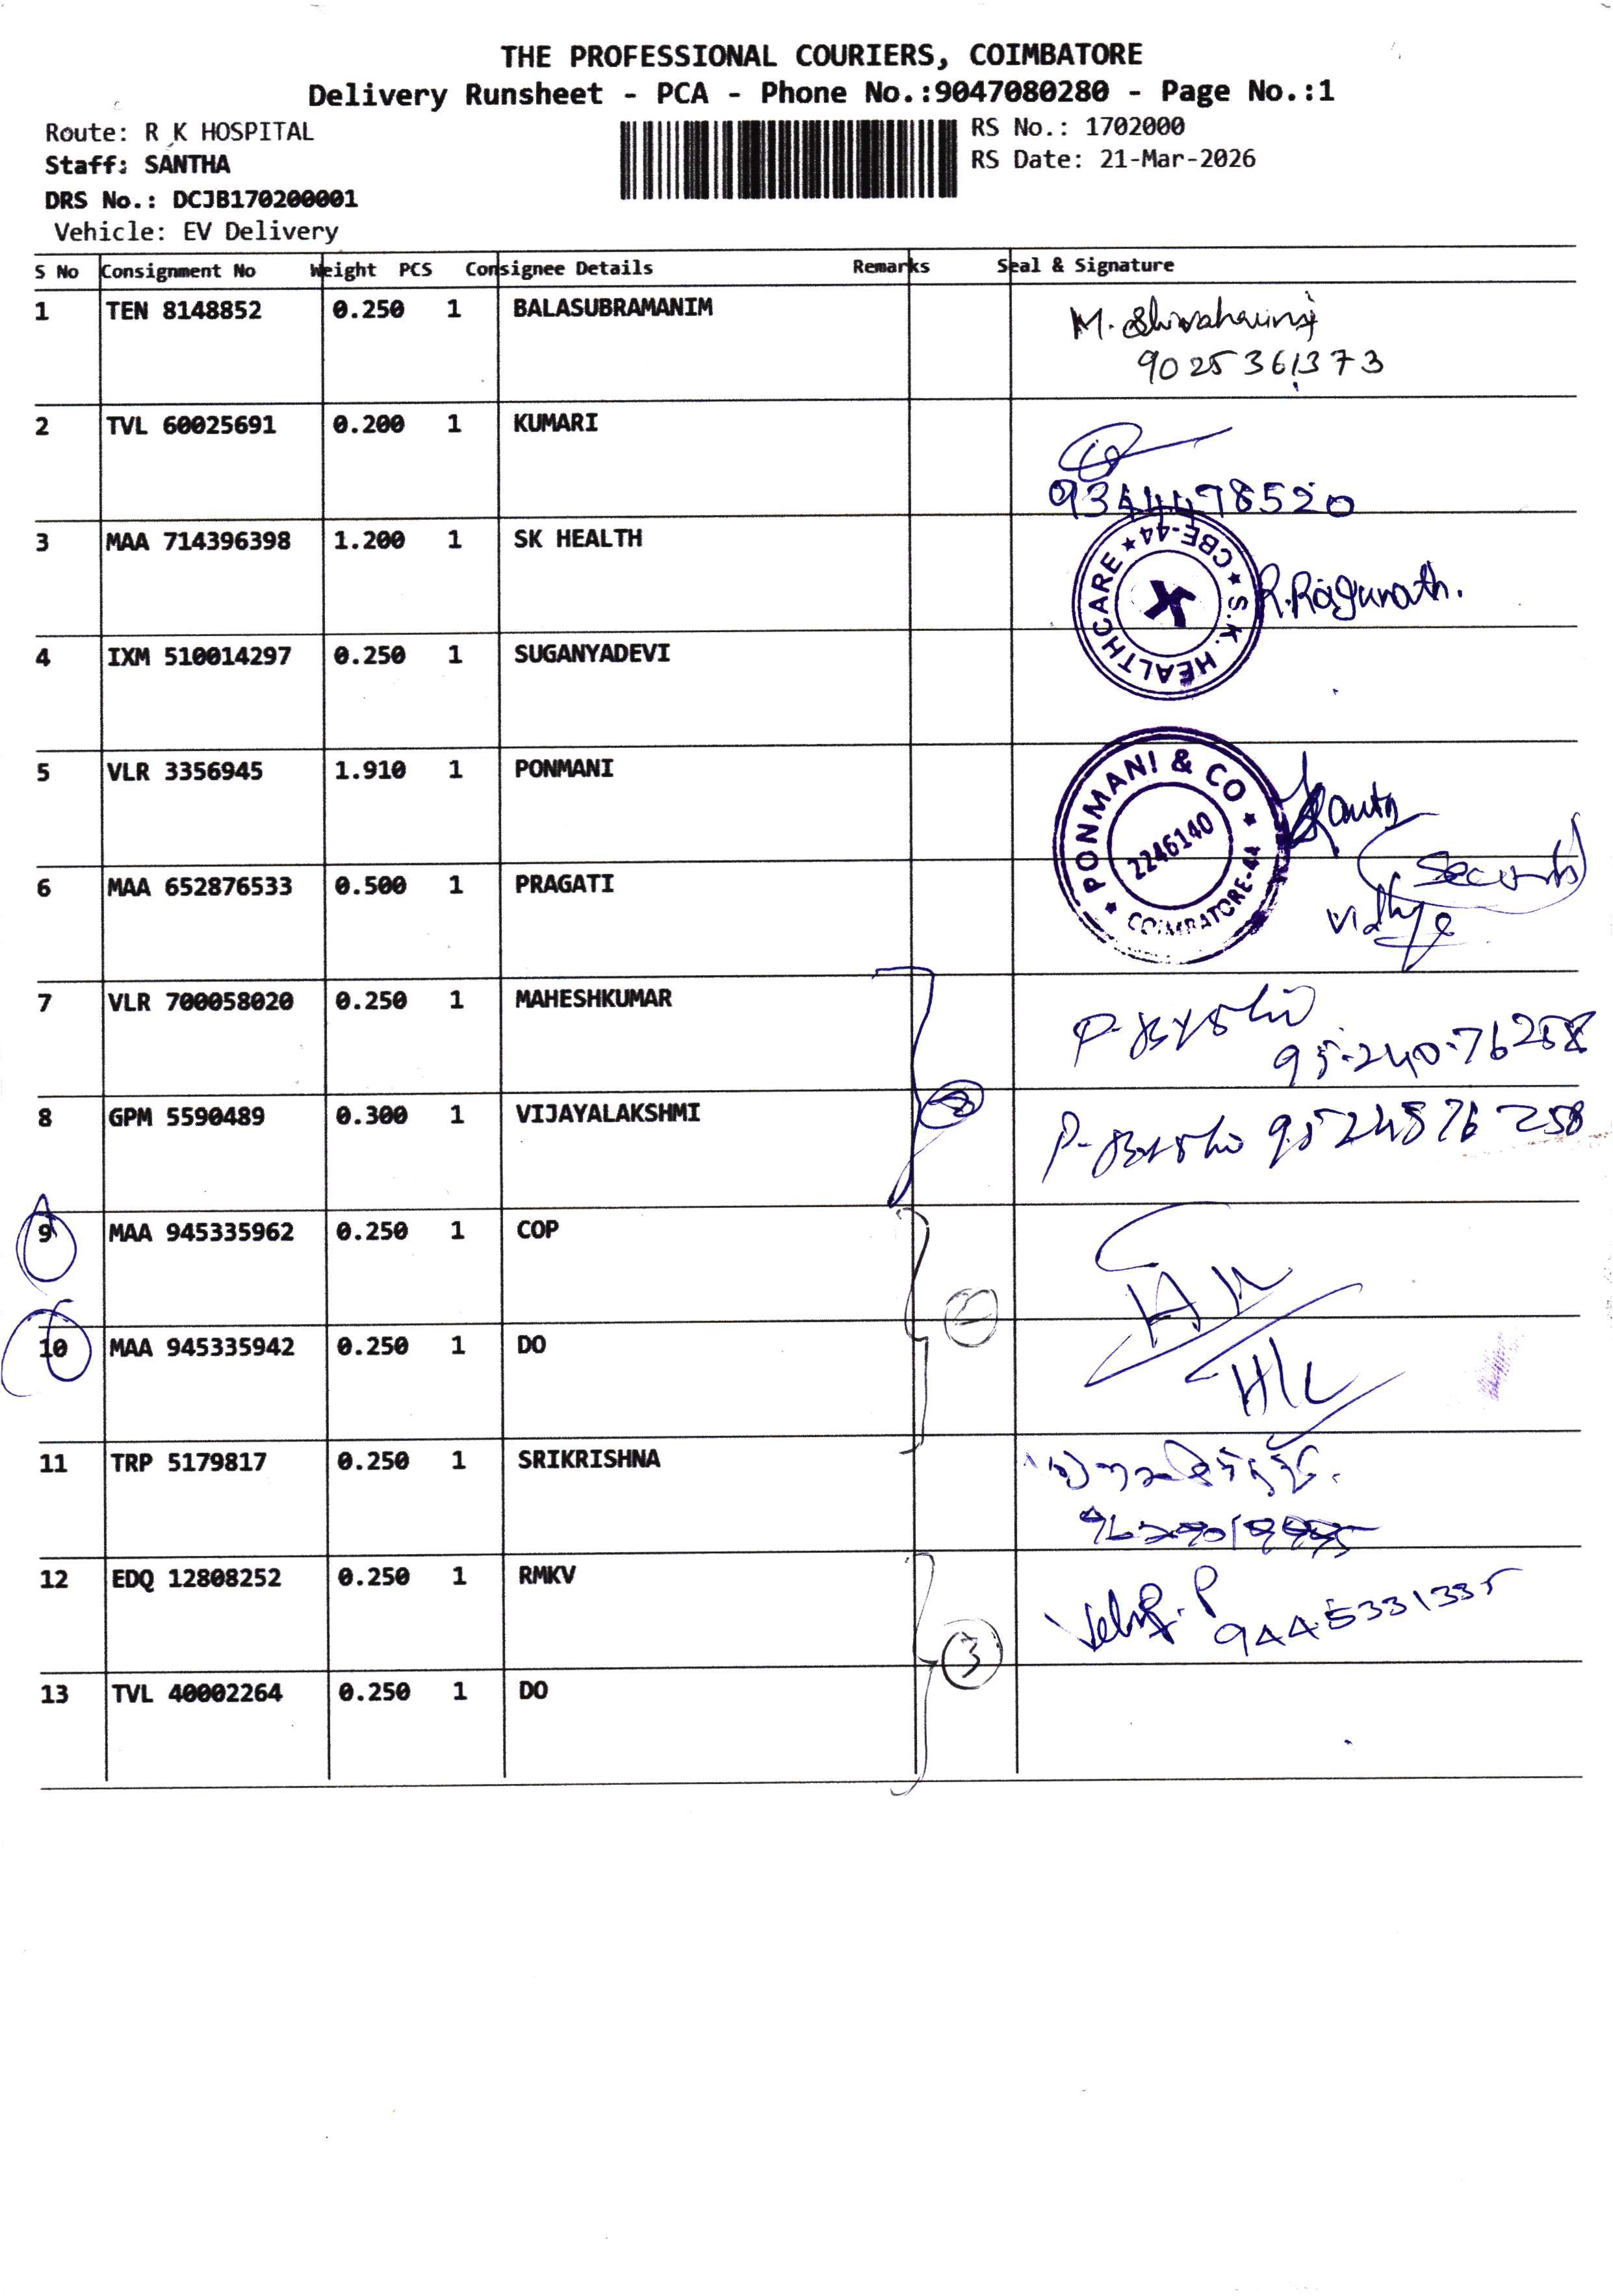 THE PROFESSIONAL COURIERS, COIMBATORE
Delivery Runsheet - PCA - Phone No.:9047080280 - Page No.:1
Route: R K HOSPITAL
Staff: SANTHA
DRS No.: DCJB170200001
Vehicle: EV Delivery
RS No.: 1702000
RS Date: 21-Mar-2026
S No Consignment No Weight PCS Consignee Details Remarks Seal & Signature
1 TEN 8148852 0.250 1 BALASUBRAMANIM
9025361373
2 TVL 60025691 0.200 1 KUMARI
9344478520
3 MAA 714396398 1.200 1 SK HEALTH
S.K. HEALTHCARE ★ CBE-44 ★
R.Ragunath.
4 IXM 510014297 0.250 1 SUGANYADEVI
5 VLR 3356945 1.910 1 PONMANI
PONMANI & CO ★ COIMBATORE-44 ★
2246140
6 MAA 652876533 0.500 1 PRAGATI
Vidhya
7 VLR 700058020 0.250 1 MAHESHKUMAR
8 GPM 5590489 0.300 1 VIJAYALAKSHMI
9 MAA 945335962 0.250 1 COP
10 MAA 945335942 0.250 1 DO
11 TRP 5179817 0.250 1 SRIKRISHNA
12 EDQ 12808252 0.250 1 RMKV
9445331335
3
13 TVL 40002264 0.250 1 DO